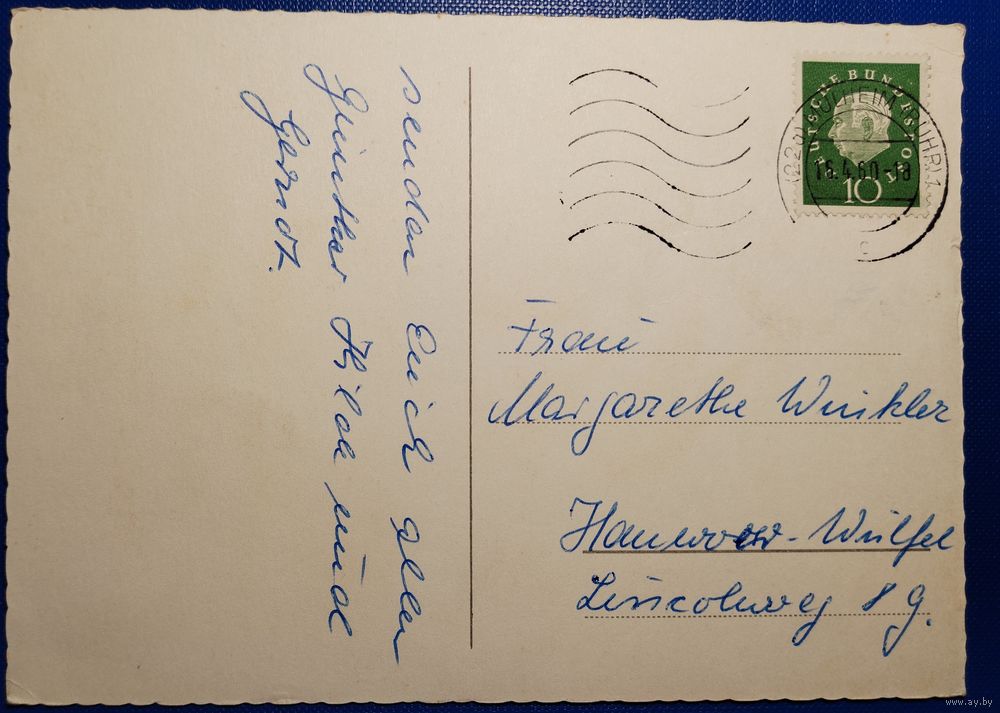 senden Euch allen
Günther Hilde und
Gerndt.
DEUTSCHE BUNDESPOST
10
(22a) MÜLHEIM (RUHR) 1
16.4.60-18
c
Frau
Margarethe Winkler
Hannover-Wülfel
Lincolnweg 8 g.
www.ay.by